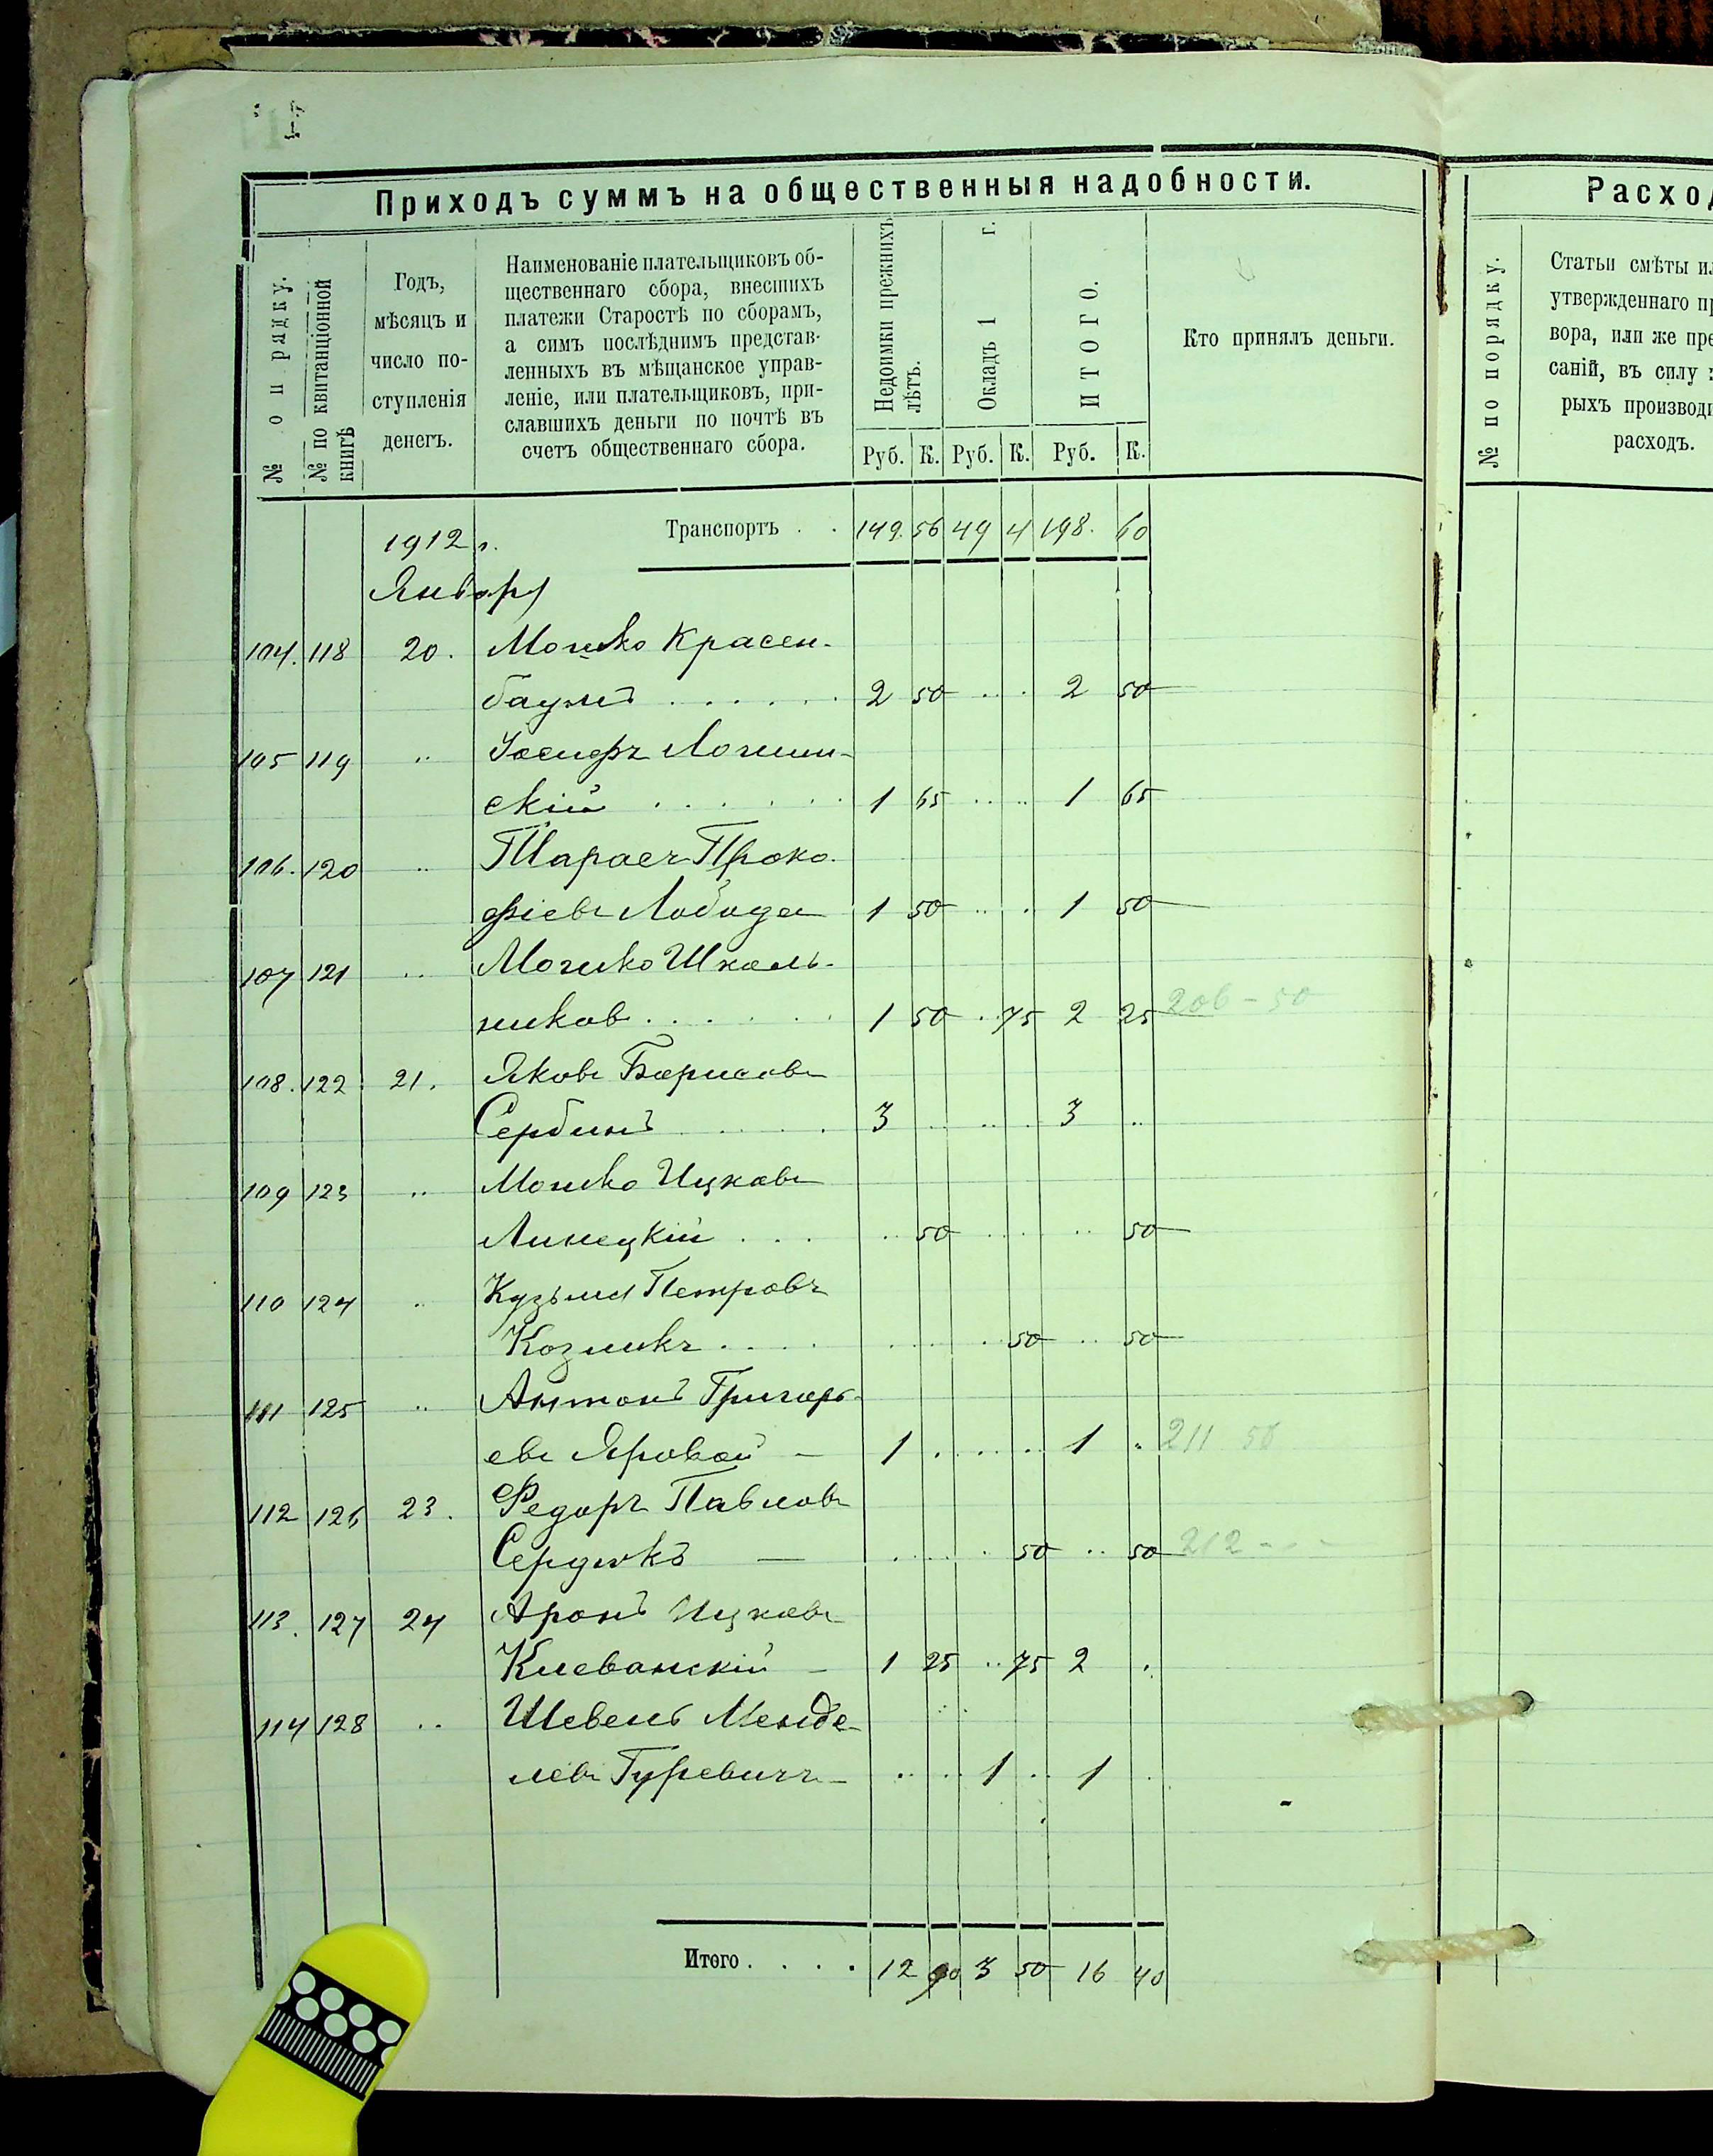 Приходъ суммъ на общественныя надобности.
№ о п рядку.
№ по квитанціонной книгѣ
Годъ,
мѣсяцъ и
число по-
ступленія
денегъ.
Наименованіе плательщиковъ об-
щественнаго сбора, внесшихъ
платежи Старостѣ по сборамъ,
а симъ послѣднимъ представ-
ленныхъ въ мѣщанское управ-
леніе, или плательщиковъ, при-
славшихъ деньги по почтѣ въ
счетъ общественнаго сбора.
Недоимки прежнихъ лѣтъ.
Окладъ 1 г.
ИТОГО.
Кто принялъ деньги.
Руб. К. Руб. К. Руб. К.
1912 г. Транспортъ . . 149. 56 49 4 198. 60
Января
104. 118 20. Мошко Красен-
баумъ . . . . . . 2 50 .. . 2 50
105 119 .. Іосифъ Логин-
скій . . . . . . 1 65 .. .. 1 65
106. 120 .. Тарасъ Проко-
фіевъ Лобода 1 50 .. . 1 50
107 121 .. Мошко Школь-
никовъ . . . . . 1 50 . 75 2 25 206 - 50
108. 122 21. Яковъ Борисовъ
Сербинъ . . . . 3 .. .. . 3 ..
109 123 .. Мошко Ицковъ
Линецкій . . . .. 50 .. .. 50
110 124 .. Кузьма Петровъ
Козликъ . . . . . . . . 50 .. 50
111 125 .. Антонъ Григорь-
евъ Яровой - 1 . . . .. 1 . 211 50
112 126 23. Федоръ Павловъ
Сердюкъ — . . . . 50 .. 50 212 - -
113. 127 24 Аронъ Ицковъ
Клеванскій - 1 25 .. 75 2 .
114 128 .. Шевель Менде-
левъ Гуревичъ - .. .. 1 .. 1 .
Итого . . . . 12 90 3 50 16 40
Расход
№ по порядку.
Статьи смѣты ил
утвержденнаго пр
вора, или же пре
саній, въ силу
рыхъ производи
расходъ.